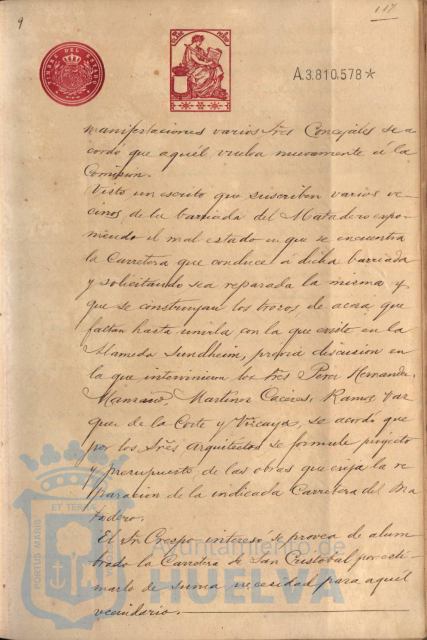 9
117
TIMBRE DEL ESTADO
A.3.810.578*
manifestaciones varios Sres Concejales se a
cordó que aquél vuelva nuevamente á la
Comision.
Visto un escrito que suscriben varios ve
cinos de la barriada del Matadero expo
niendo el mal estado en que se encuentra
la Carretera que conduce á dicha barriada
y solicitando sea reparada la misma y
que se construyan los trozos de acera que
faltan hasta unirla con la que existe en la
Alameda Sundheim, prévia discusion en
la que intervinieron los Sres Perez Hernandez
Martinez Caceres, Ramos Var
que de la Corte y Vizcaya, se acordó que
por los Sres Arquitectos se formule proyecto
y presupuesto de las obras que exija la re
paracion de la indicada Carretera del Ma
tadero.
El Sr Crespo interesó se provea de alum
brado la Carretera de San Cristobal por esti
marlo de suma necesidad para aquél
vecindario.
PORTUS MARIS ET TERRAE
Ayuntamiento de
HUELVA